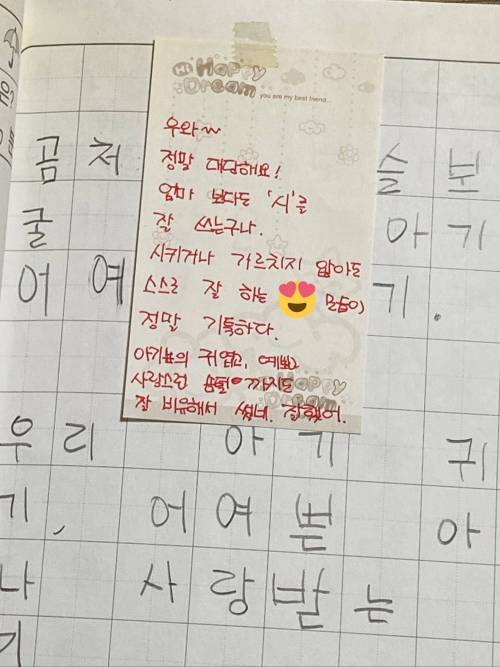 Hi Happy
Dream
you are my best friend...
우와~
정말 대단해요!
엄마 보다도 '시'를
잘 쓰는구나.
시키거나 가르치지 않아도
스스로 잘 하는 모습이
정말 기특하다.
아기뾰의 귀엽고, 예쁘고
사랑스런 솜털 까지도
잘 비유해서 썼네. 잘했어.
Happy
Dream
곰 처 슬 보
굴 아 기
어 여 기.
우 리 아 기 귀
기, 어 여 쁜 아
나 사 랑 받 는
기